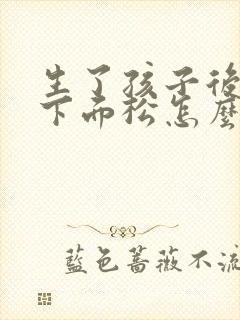 生了孩子後
下面松怎麼
藍色薔薇不流